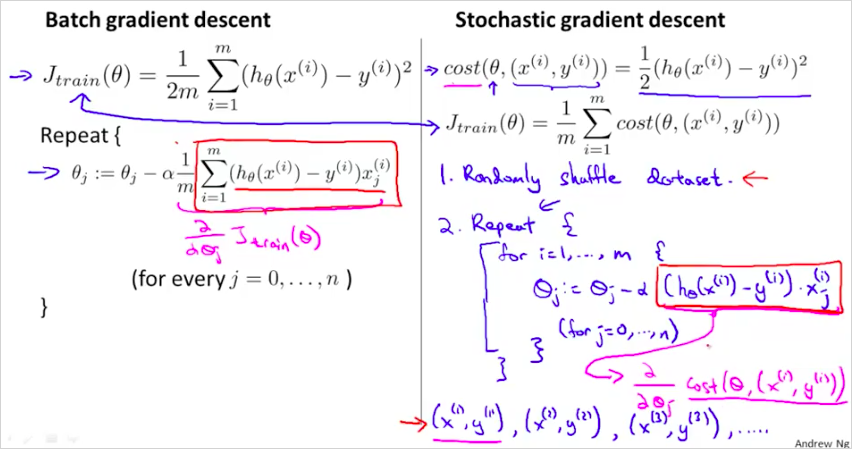 Batch gradient descent
J_train(θ) = 1/2m ∑_{i=1}^{m} (h_θ(x^(i)) − y^(i))²
Repeat {
θ_j := θ_j − α 1/m ∑_{i=1}^{m} (h_θ(x^(i)) − y^(i))x_j^(i)
∂/∂θ_j J_train(θ)
(for every j = 0, . . . , n )
}
Stochastic gradient descent
cost(θ, (x^(i), y^(i))) = 1/2 (h_θ(x^(i)) − y^(i))²
J_train(θ) = 1/m ∑_{i=1}^{m} cost(θ, (x^(i), y^(i)))
1. Randomly shuffle dataset.
2. Repeat {
for i=1, ..., m {
θ_j := θ_j − α (h_θ(x^(i)) − y^(i)) · x_j^(i)
(for j=0, ..., n)
}
}
∂/∂θ_j cost(θ, (x^(i), y^(i)))
(x^(1), y^(1)), (x^(2), y^(2)), (x^(3), y^(3)), .....
Andrew Ng